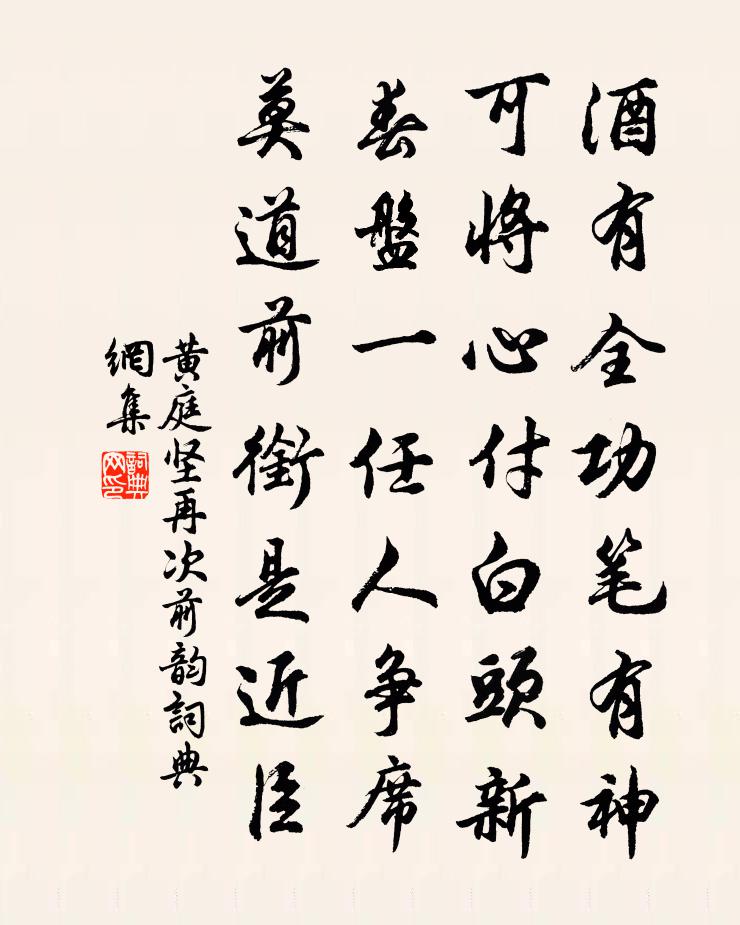 酒有全功笔有神
可將心付白頭新
春盤一任人争席
莫道前銜是近臣
黄庭坚再次前韵詞典
網集
詞典
网印